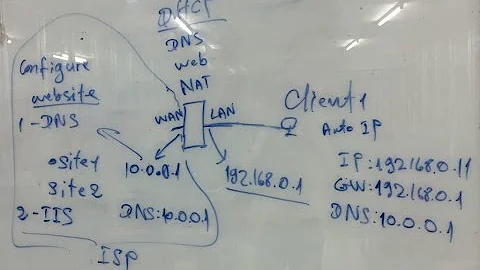 DHCP
DNS
web
NAT
Configure
website
1-DNS
site1
site2
2-IIS
WAN
LAN
10.0.0.1
DNS:10.0.0.1
192.168.0.1
ISP
Client1
Auto IP
IP:192.168.0.11
GW:192.168.0.1
DNS:10.0.0.1